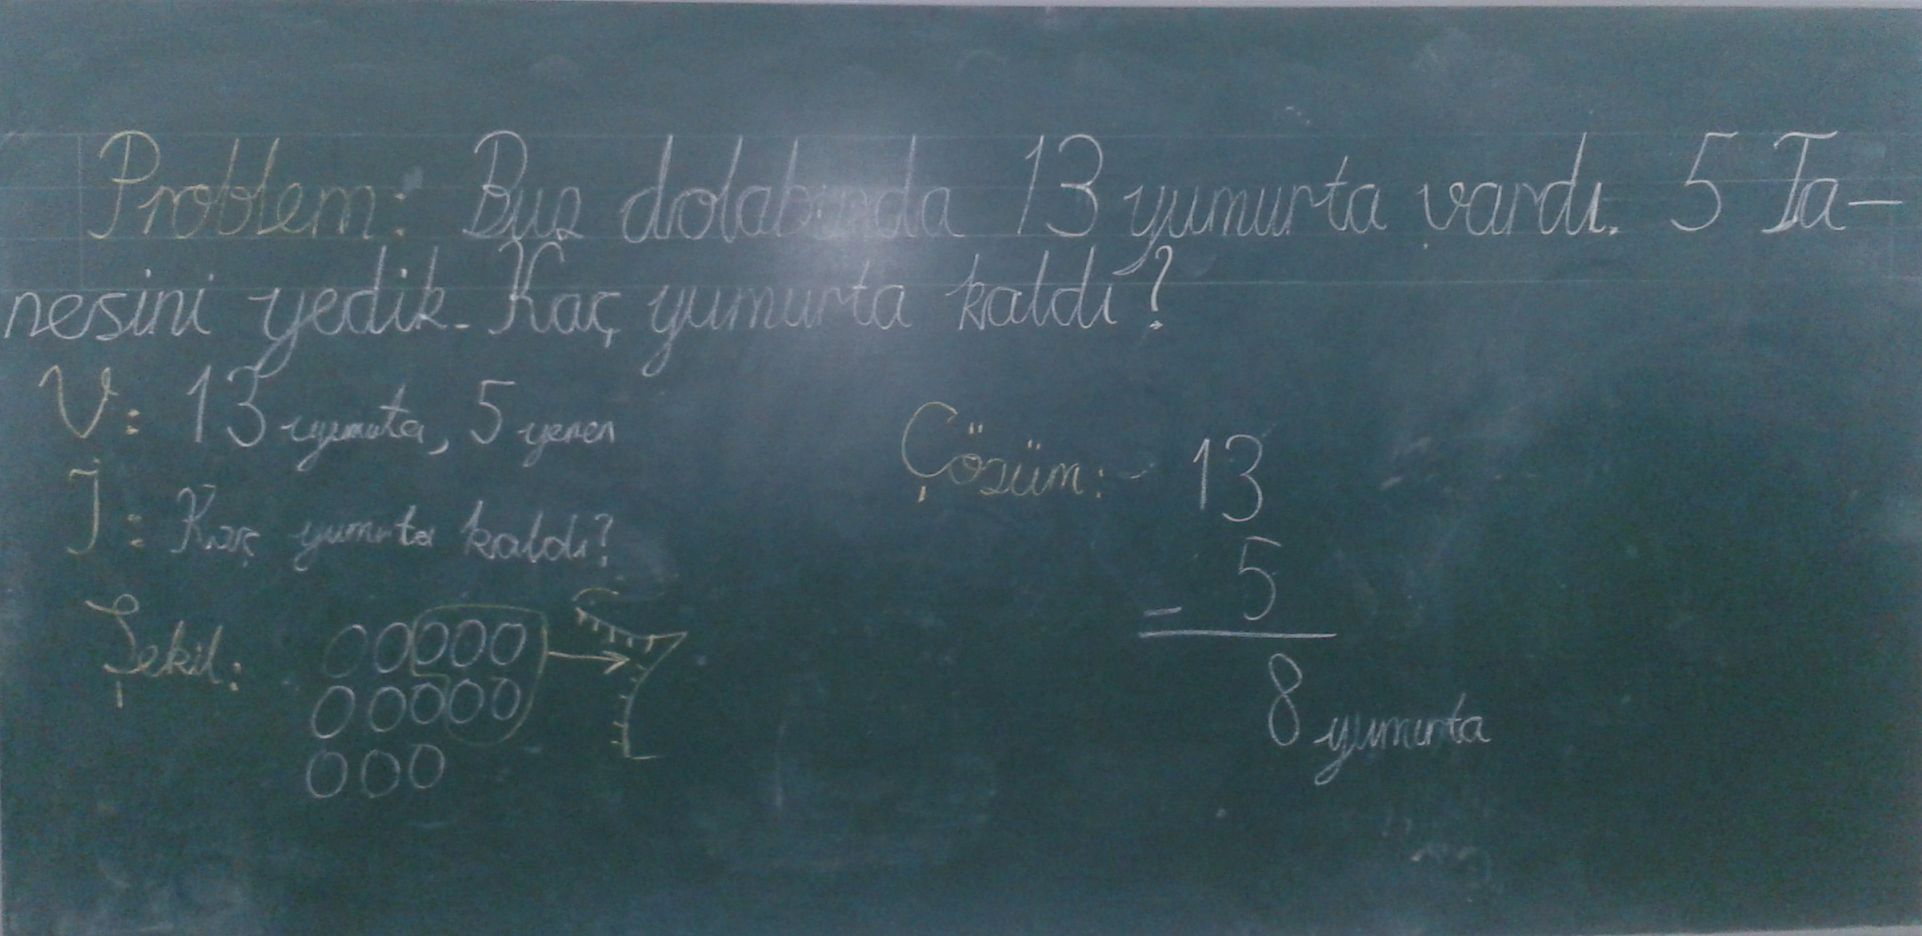 Problem: Buz dolabında 13 yumurta vardı. 5 Ta-
nesini yedik. Kaç yumurta kaldı?
V: 13 yumurta, 5 yenen
İ: Kaç yumurta kaldı?
Şekil:
Çözüm:
13
- 5
8 yumurta